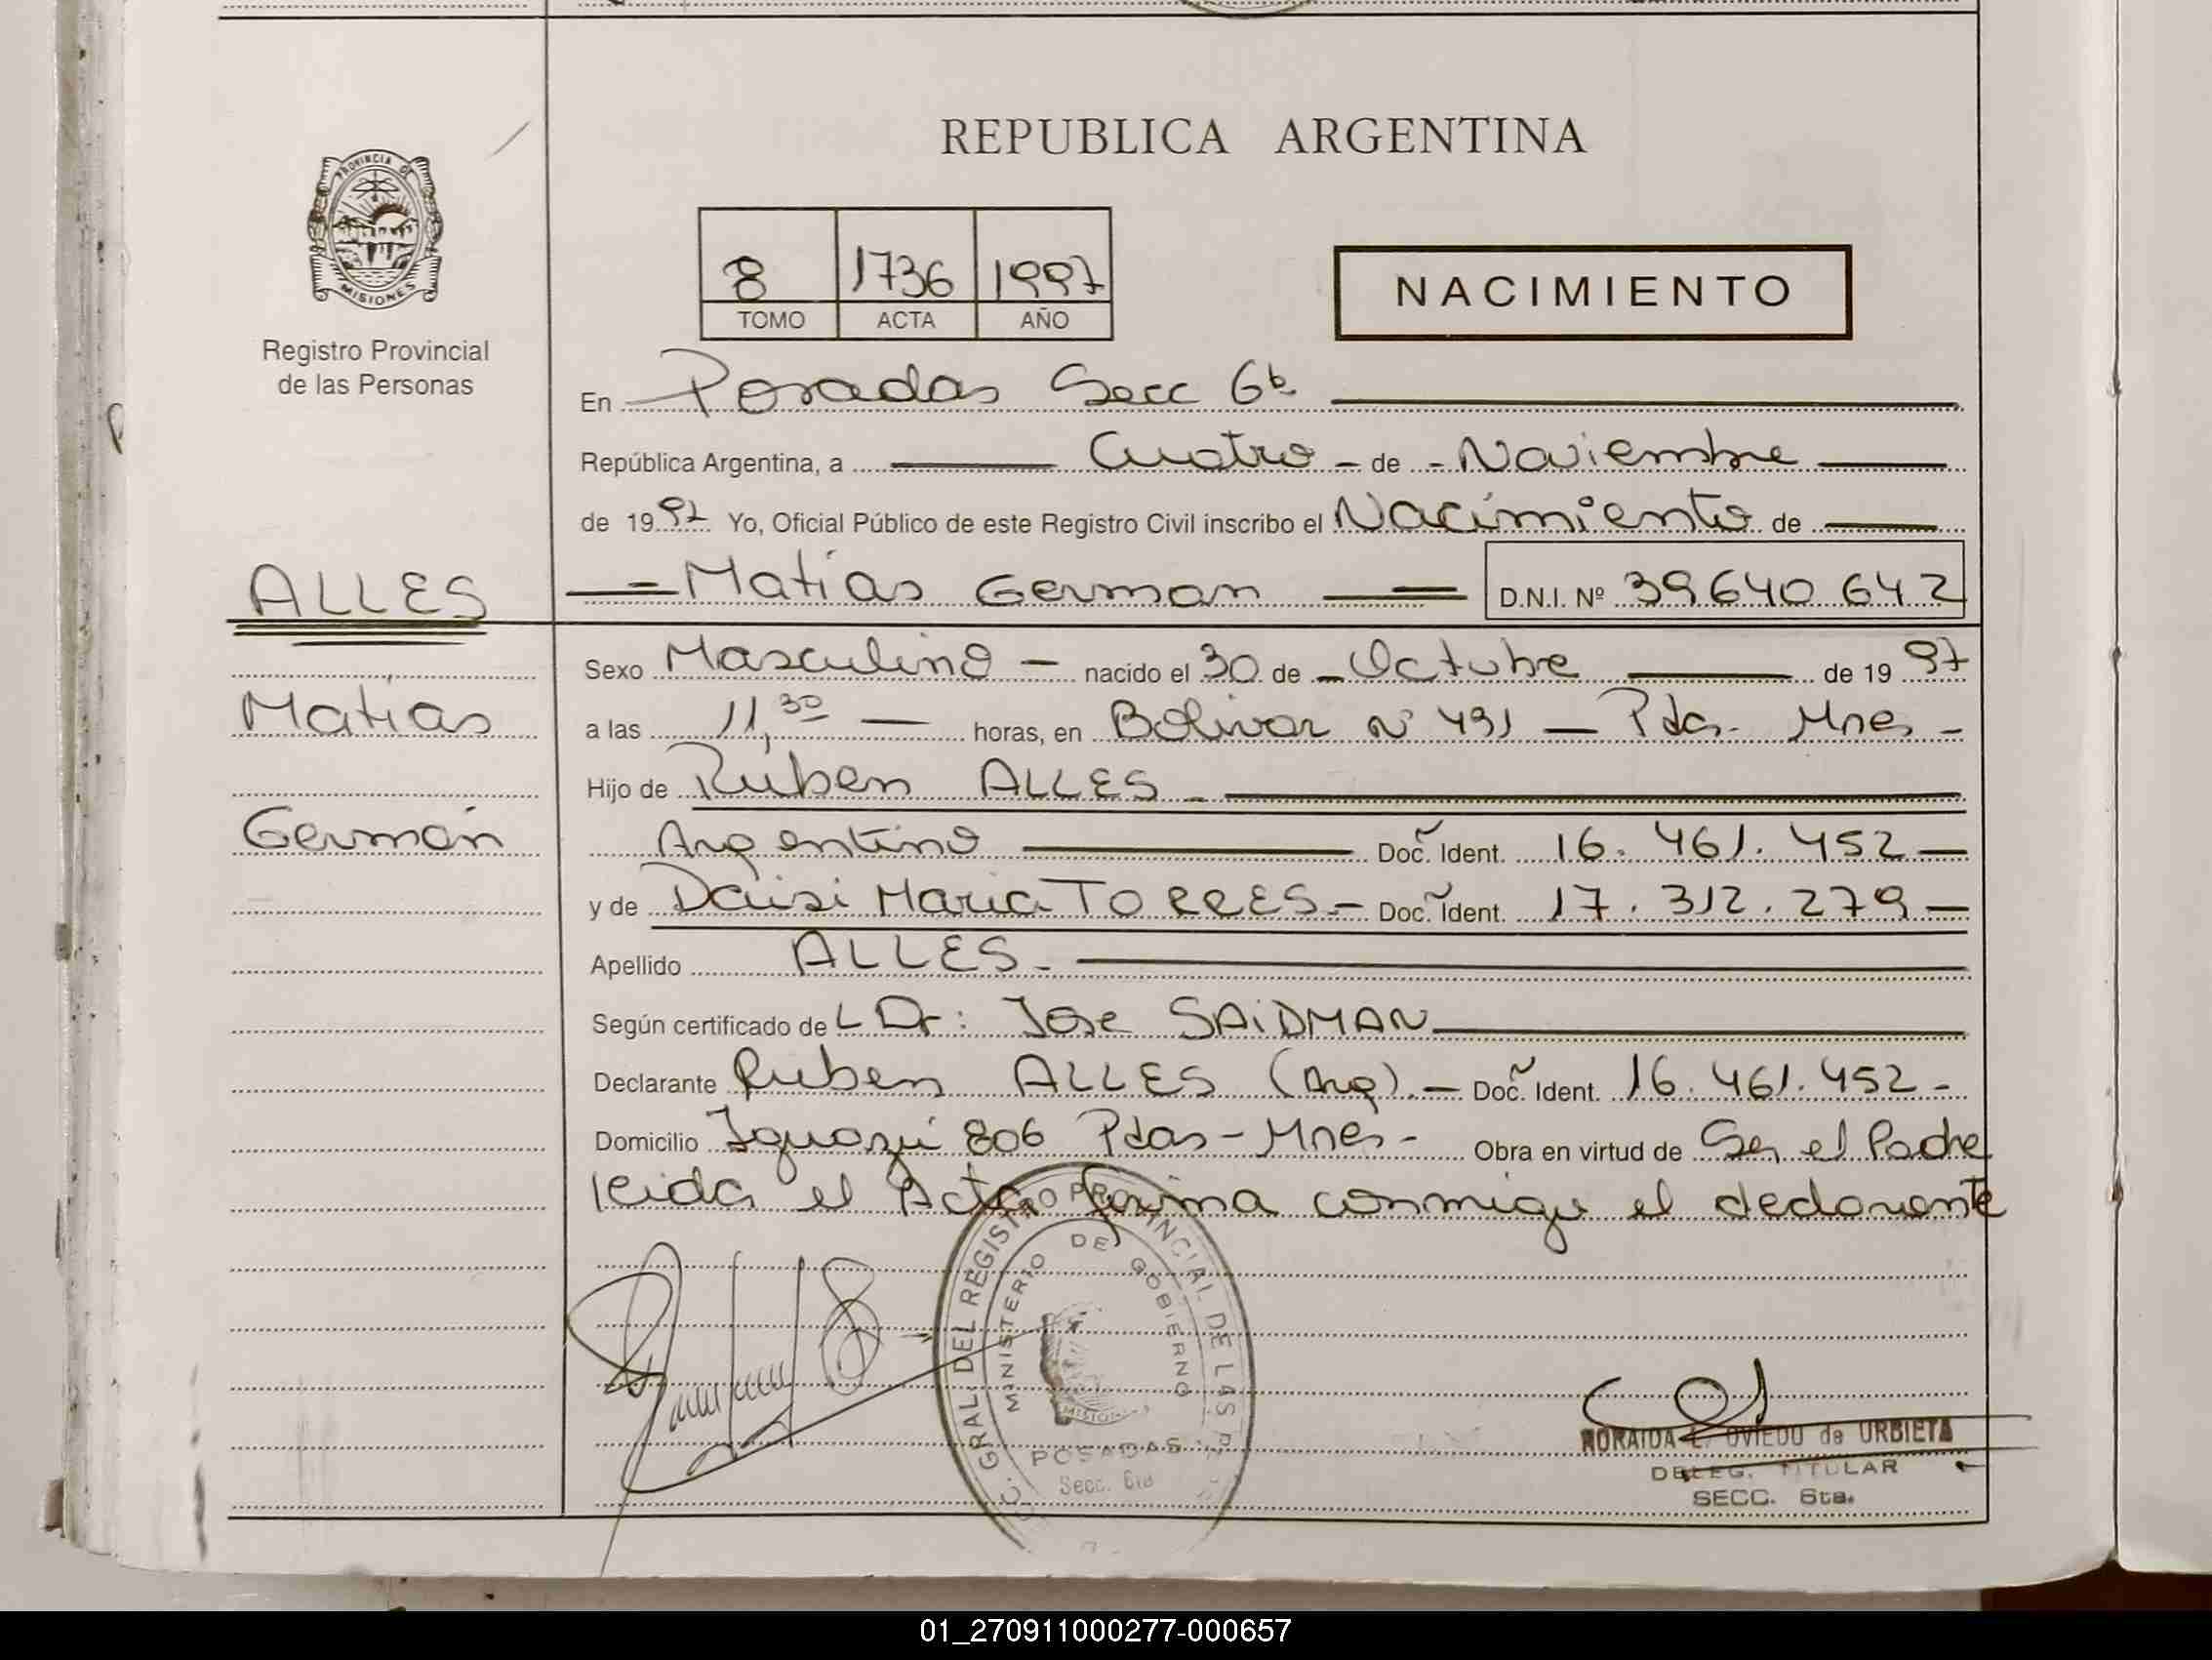 REPUBLICA ARGENTINA
PROVINCIA DE
MISIONES
Registro Provincial
de las Personas
8 1736 1997
TOMO ACTA AÑO
NACIMIENTO
En Posadas Secc 6ta
República Argentina, a Cuatro - de - Noviembre
de 1997 Yo, Oficial Público de este Registro Civil inscribo el Nacimiento de
ALLES
Matias German D.N.I. Nº 39640642
Sexo Masculino - nacido el 30 de - Octubre de 1997
Matias
a las 11,30 horas, en Bolivar Nº 491 - Pdas. Mnes -
Hijo de Rúben ALLES -
Germán
Argentino Docº. Ident. 16.461.452 -
y de Daisi Maria TORRES - Docº. Ident. 17.312.279 -
Apellido ALLES -
Según certificado deL Dr: Jose SAIDMAN
Declarante Ruben ALLES (Arg). - Docº. Ident. 16.461.452 -
Domicilio Iguazú 806 Pdas - Mnes - Obra en virtud de Ser el Padre
leida el Acta firma conmigo el declarante
GRAL. DEL REGISTRO PROVINCIAL DE LAS
MINISTERIO DE GOBIERNO
POSADAS
Secc. 6ta
NORAIDA L. OVIEDO de URBIETA
DELEG. TITULAR
SECC. 6ta.
01_270911000277-000657